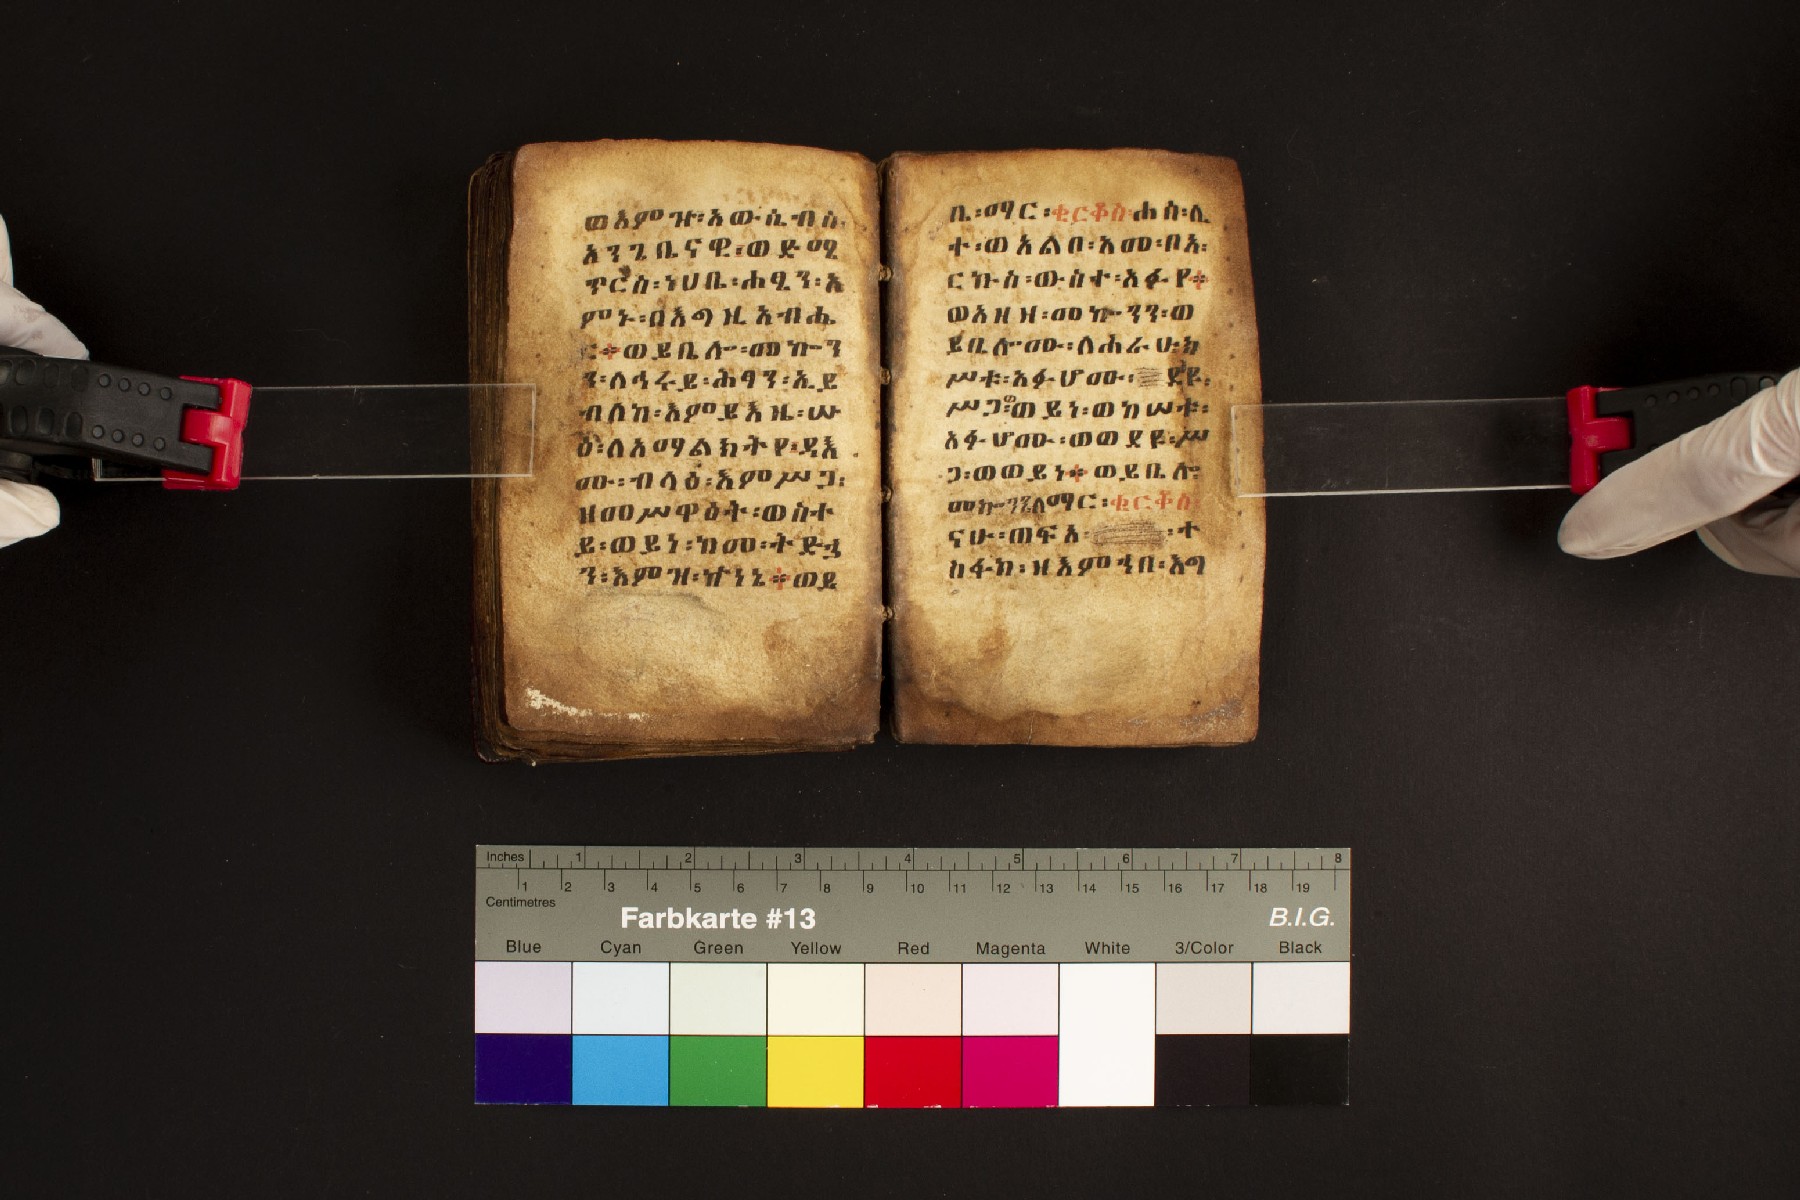 ወእምዝ፡አውሲብስ፡
እንጊቤናዊ፡ወድሜ
ጥርስ፡ነሀቤ፡ሐፂን፡አ
ምኑ፡በእግዚአብሔ
ር፨ወይቤሎ፡መኰን
ን፡ለኅሩይ፡ሕፃን፡ኢይ
ብለከ፡እምይእዜ፡ሡ
ዕ፡ለአማልክትየ፡ዳእ
ሙ፡ብላዕ፡እምሥጋ፡
ዘመሥዋዕት፡ወስተ
ይ፡ወይነ፡ከመ፡ትድኃ
ን፡እምዝ፡ኵነኔ፨ወይ
ቤ፡ማር፡ቂርቆስ፡ሐሰ፡ሊ
ተ፡ወአልቦ፡አመ፡ቦአ፡
ርኩስ፡ውስተ፡አፉየ፨
ወአዘዘ፡መኰንን፡ወ
ይቤሎሙ፡ለሐራሁ፡ክ
ሥቱ፡አፉሆሙ፡ደዩ፡
ሥጋ፡ወይነ፡ወከሠቱ፡
አፉሆሙ፡ወወደዩ፡ሥ
ጋ፡ወወይነ፨ወይቤሎ፡
መኰንን፡ለማር፡ቂርቆስ
ናሁ፡ጠፍአ፡ተ
ስፋከ፡ዘእምኀበ፡እግ
Inches 1 2 3 4 5 6 7 8
1 2 3 4 5 6 7 8 9 10 11 12 13 14 15 16 17 18 19
Centimetres
Farbkarte #13 B.I.G.
Blue Cyan Green Yellow Red Magenta White 3/Color Black